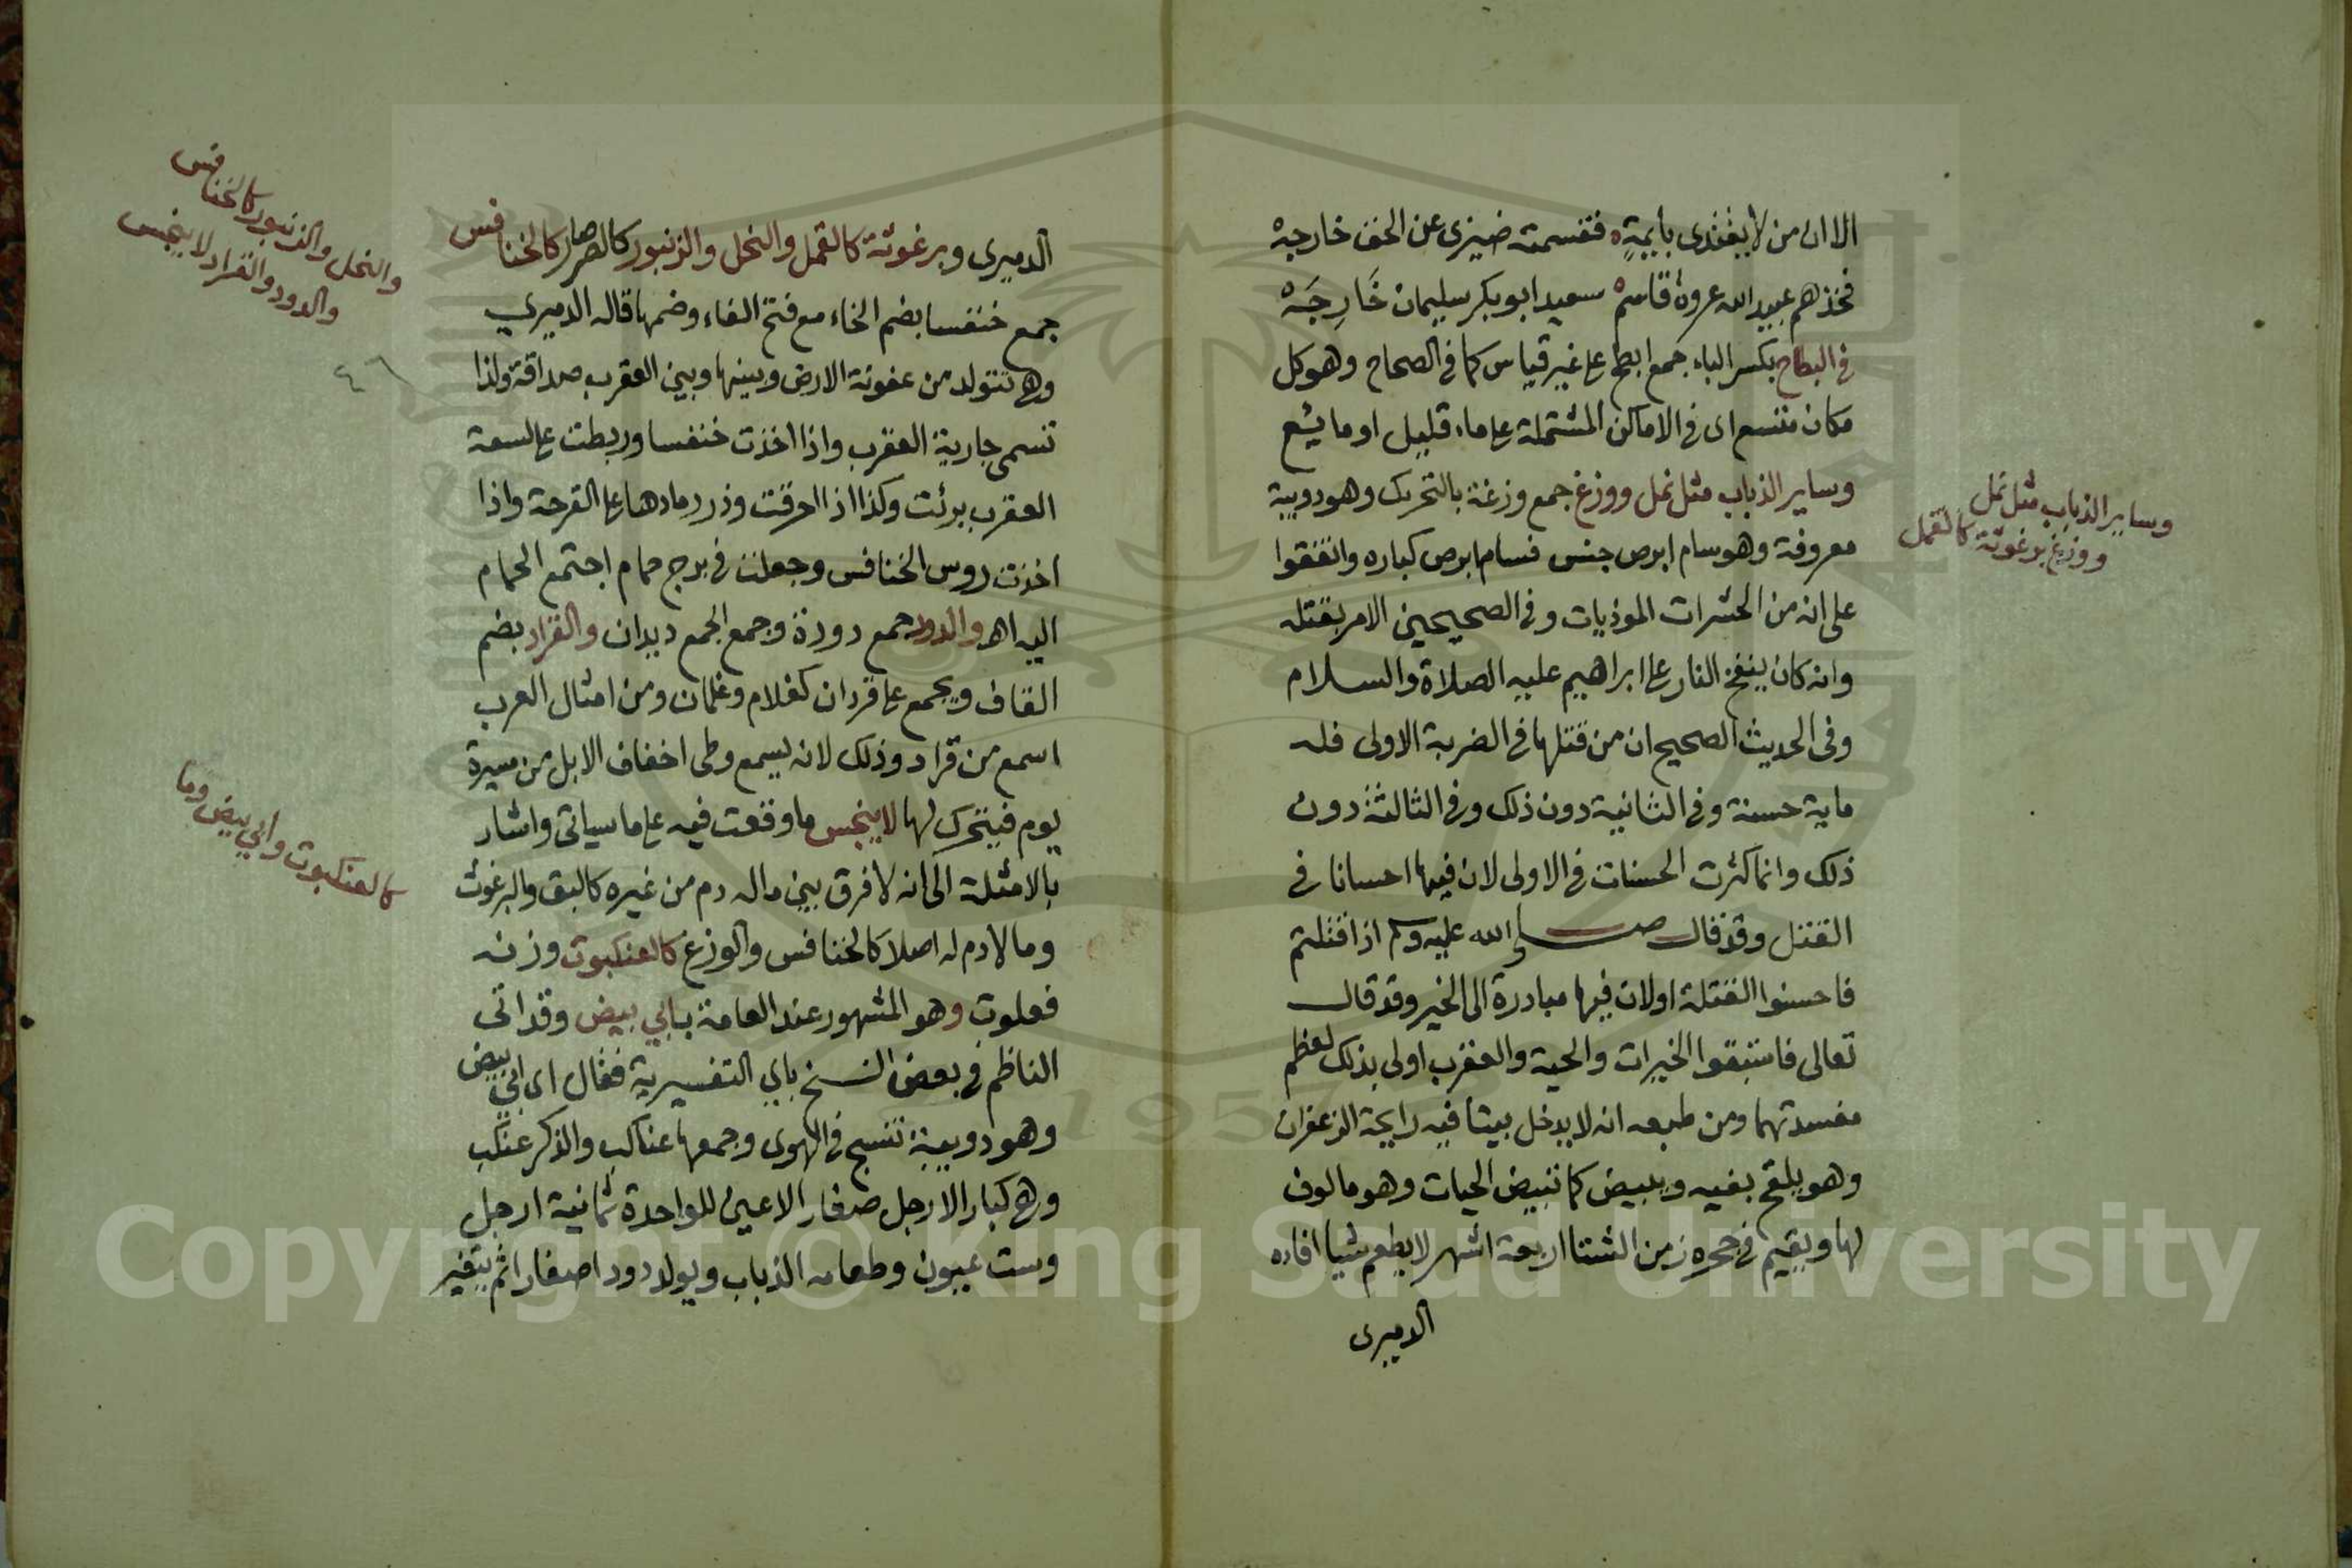 الا ان من لا يقتدى بايمة فقسمته ضيزى عن الحق خارجه
فخذهم عبيد الله عروة قاسم سعيد ابو بكر سليمان خَارِجَه
في البطاح بكسر الباء جمع ابطح على غير قياس كما في الصحاح وهو كل
مكان متسع اى في الاماكن المشتملة على ماء قليل او ما يشع
وساير الذباب مثل نمل ووزغ جمع وزغة بالتحريك وهو دويبة
معروفة وهو سام ابرص جنس فسام ابرص كباره واتفقوا
على انه من الحشرات الموذيات وفي الصحيحين الامر بقتله
وانه كان ينفخ النار على ابراهيم عليه الصلاة والسلام
وفى الحديث الصحيح ان من قتلها في الضربة الاولى فله
ماية حسنة وفي الثانية دون ذلك وفي الثالثة دون
ذلك وانما كثرت الحسنات في الاولى لان فيها احسانا في
القتل وقد قال صلى الله عليه وسلم اذا قتلتم
فاحسنوا القتلة او لان فيها مبادرة الى الخير وقد قال
تعالى فاستبقوا الخيرات والحية والعقرب اولى بذلك لعظم
مفسدتهما ومن طبعه انه لا يدخل بيتا فيه رايحة الزعفران
وهو يلقح بفيه ويبيض كما تبيض الحيات وهو مالوف
لها ويقيم في جحره زمن الشتا اربعة اشهر لا يطعم شيا افاده
الدميرى
وساير الذباب مثل نمل
ووزغ برغوثة كالقمل
الدميرى وبرغوثة كالقمل والنحل والزنبور كالصرصار كالخنافس
جمع خنفسا بضم الخاء مع فتح الفاء وضمها قاله الدميري
وهي تتولد من عفونة الارض وبينها وبين العقرب صداقة ولذا
تسمى جارية العقرب واذا اخذت خنفسا وربطت على لسعة
العقرب برئت وكذا اذا احرقت وذر رمادها على القرحة واذا
اخذت روس الخنافس وجعلت في برج حمام اجتمع الحمام
اليه اهـ والدود جمع دودة وجمع الجمع ديدان والقراد بضم
القاف ويجمع على قردان كغلام وغلمان ومن امثال العرب
اسمع من قراد وذلك لانه يسمع وطى اخفاف الابل من مسيرة
يوم فيتحرك لها لا ينجس ما وقعت فيه على ما سياتى واشار
بالامثلة الى انه لا فرق بين ما له دم من غيره كالبق والبرغوث
وما لا دم له اصلا كالخنافس والوزغ كالعنكبوت وزنه
فعلوت وهو المشهور عند العامة بابي بيض وقد اتى
الناظم في بعض النسخ باي التفسيرية فقال اى ابي بيض
وهو دويبة تنسج في الهوى وجمعها عناكب والذكر عنكب
وهي كبار الارجل صغار الاعين للواحدة ثمانية ارجل
وست عيون وطعامه الذباب ويولد دودا صغارا ثم يتغير
والنحل والزنبور كالخنافس
والدود والقراد لا ينجس
٤٦
كالعنكبوت وابي بيض وما
Copyright © King Saud University
1957